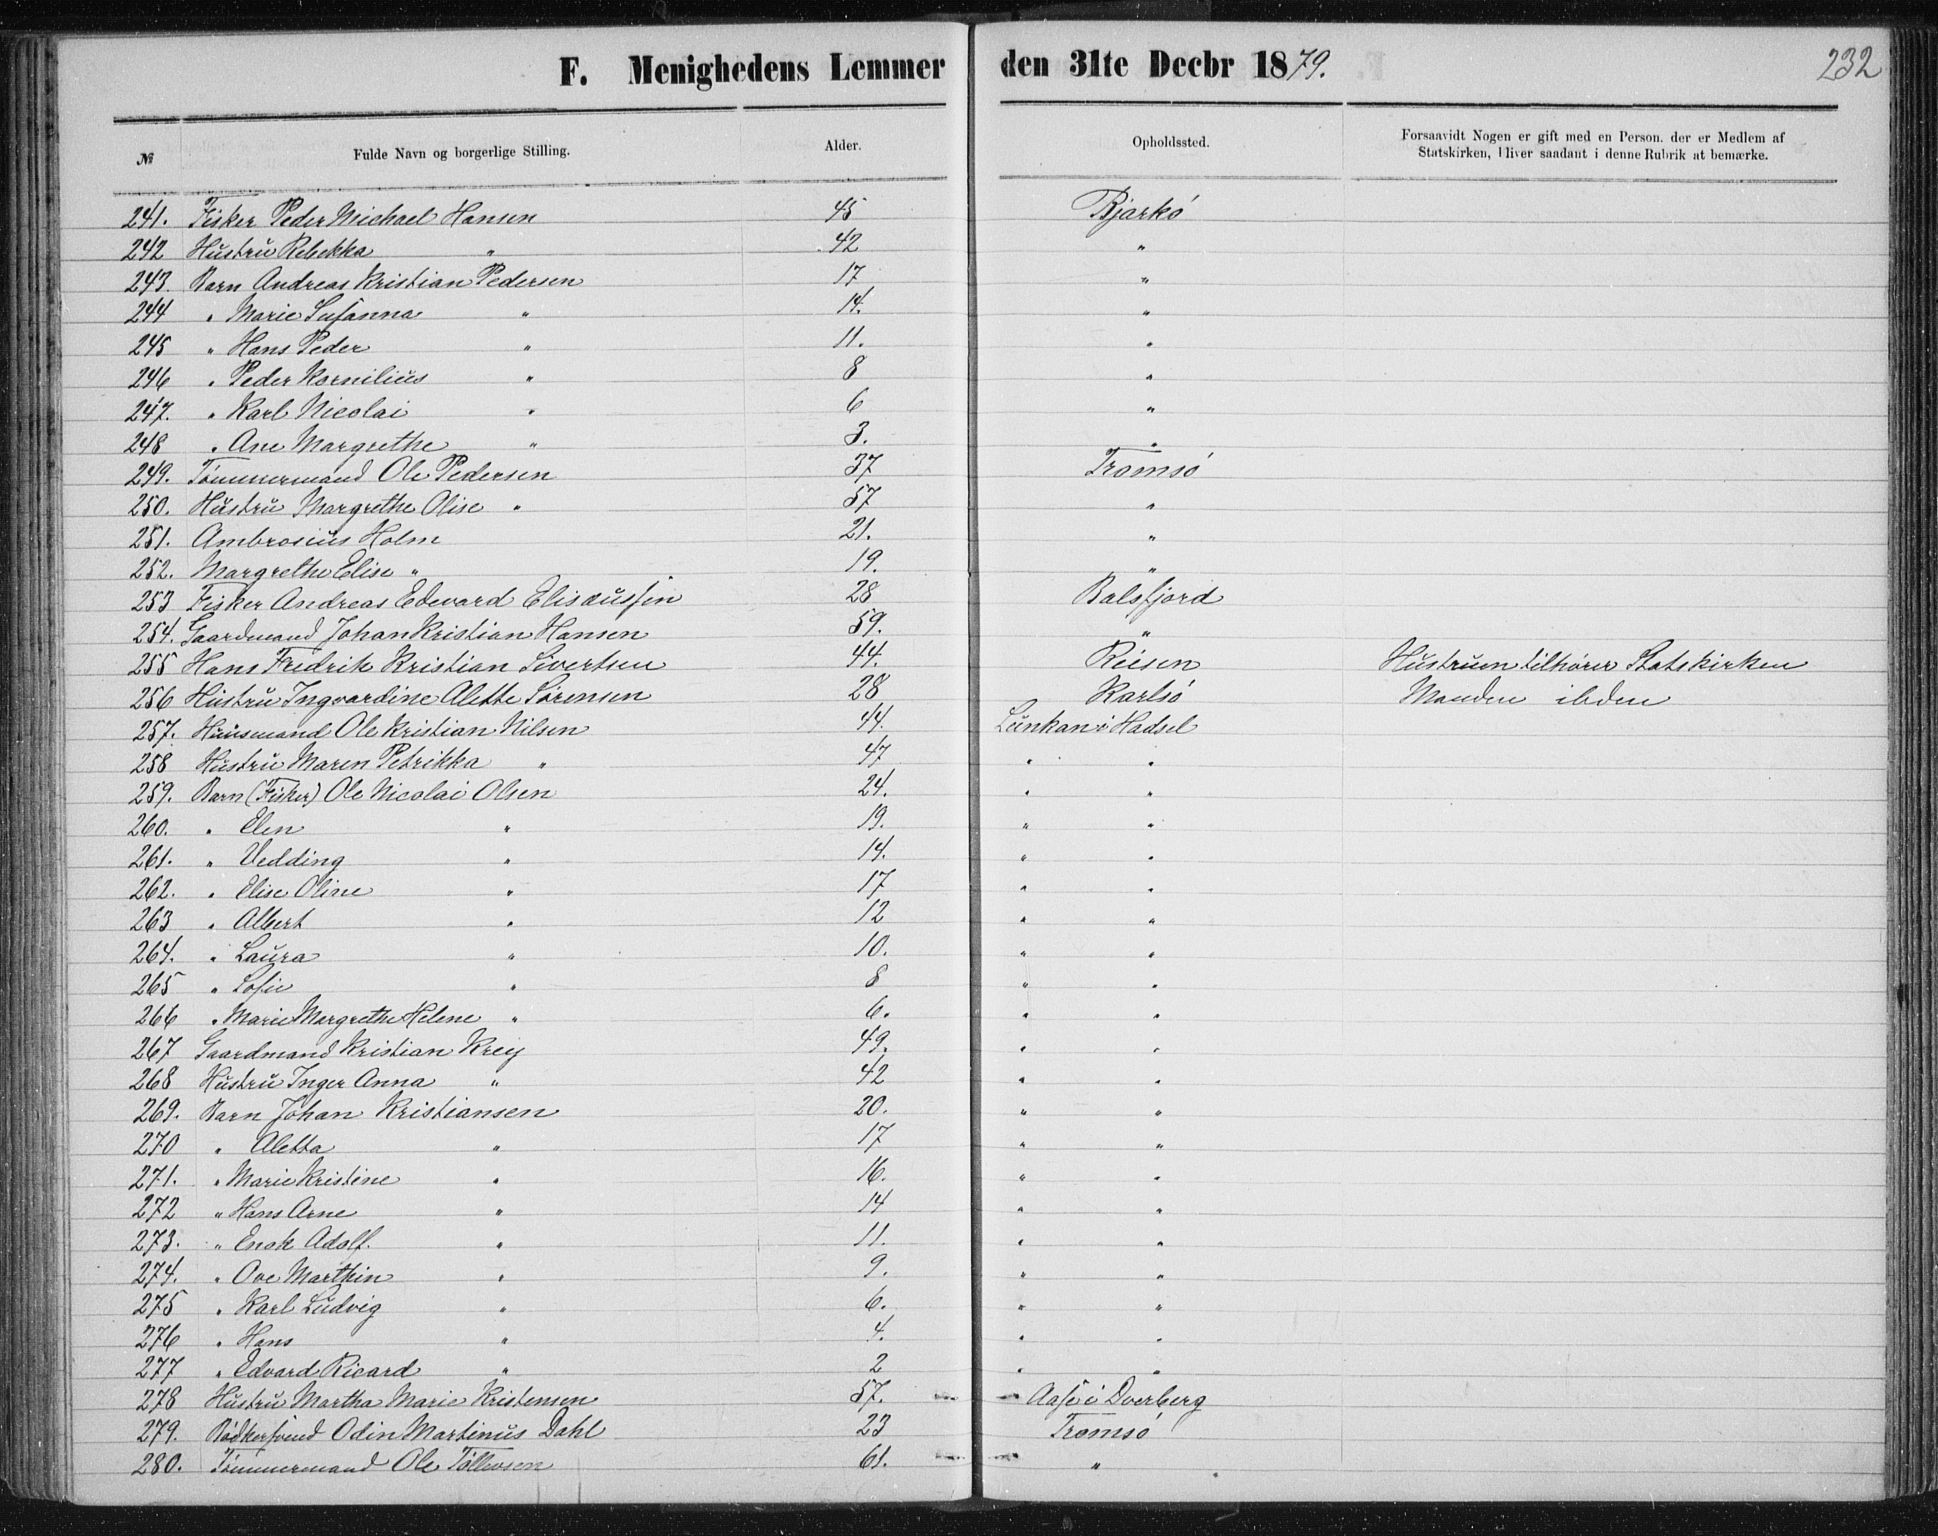 F. Menighedens Lemmer den 31te Decbr 1879. 232
№ Fulde Navn og borgerlige Stilling. Alder. Opholdssted. Forsaavidt Nogen er gift med en Person. der er Medlem af
Statskirken, bliver saadant i denne Rubrik at bemærke.
241. Fisker Peder Michael Hansen 45 Bjarkö
242 Hustru Rebekka " 42 "
243. Barn Andreas Kristian Pedersen 17 "
244 " Marie Susanna " 14. "
245 " Hans Peder " 11. "
246 " Peder Kornilius " 8 "
247. " Karl Nicolai " 6 "
248 " Ane Margrethe " 3. "
249. Tömmermand Ole Pedersen 37 Tromsö
250. Hustru Margrethe Olise " 57 "
251. Ambrosius Holm 21. "
252. Margrethe Elise " 19. "
253 Fisker Andreas Edevard Elisæussen 28 Balsfjord
254. Gaardmand Johan Kristian Hansen 59. "
255 Hans Fredrik Kristian Sivertsen 44. Reisen Hustruen tilhörer Statskirken
256 Hustru Ingvardine Alette Sörensen 28 Karlsö Manden ibden
257. Huusmand Ole Kristian Nilsen 44. Lunkan i Hadsel
258 Hustru Maren Petrikka " 47 " "
259. Barn (Fisker) Ole Nicolai Olsen 24. " "
260. " Elen " 19. " "
261. " Vedding " 14. " "
262. " Elise Oline " 17 " "
263 " Albert " 12 " "
264. " Laura " 10. " "
265 " Sofie " 8 " "
266 " Marie Margrethe Helene " 6. " "
267 Gaardmand Kristian Krey 49. " "
268 Hustru Inger Anna " 42 " "
269. Barn Johan Kristiansen 20. " "
270 " Aletta " 17 " "
271. " Marie Kristine " 16. " "
272 " Hans Arne " 14 " "
273. " Enok Adolf. " 11. " "
274. " Ove Marthin " 9. " "
275 " Karl Ludvig " 6. " "
276 " Hans " 4. " "
277 " Edvard Ricard " 2 " "
278 Hustru Martha Marie Kristensen 57. Aase i Dverberg
279. Bödkersvend Odin Martinus Dahl 23 Tromsö
280. Tömmermand Ole Tollevsen 61. "